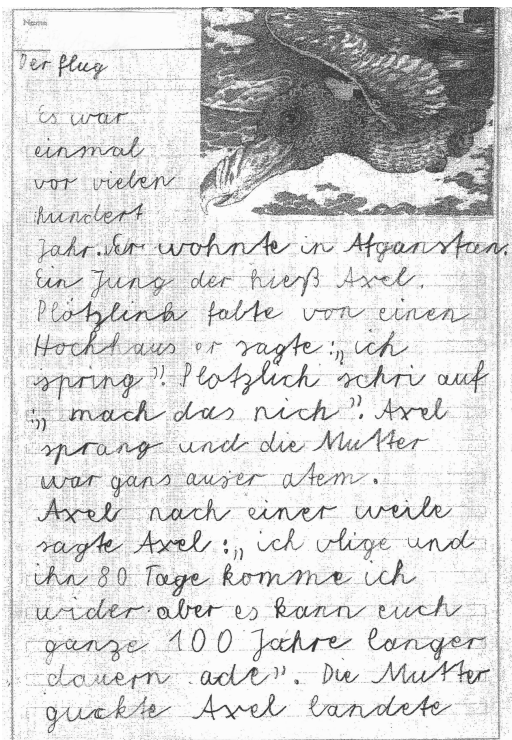 Name
Der flug
Es war
einmal
vor vielen
hundert
Jahr. Er wohnte in Afganstan.
Ein Jung der hieß Axel.
Plötzlich falte von einen
Hochhaus er sagte:„ ich
spring”. Plotzlich schri auf
:„ mach das nich”. Axel
sprang und die Mutter
war gans auser atem.
Axel nach einer weile
sagte Axel:„ ich vlige und
ihn 80 Tage komme ich
wider aber es kann euch
ganze 100 Jahre langer
dauern ade”. Die Mutter
guckte Axel landete